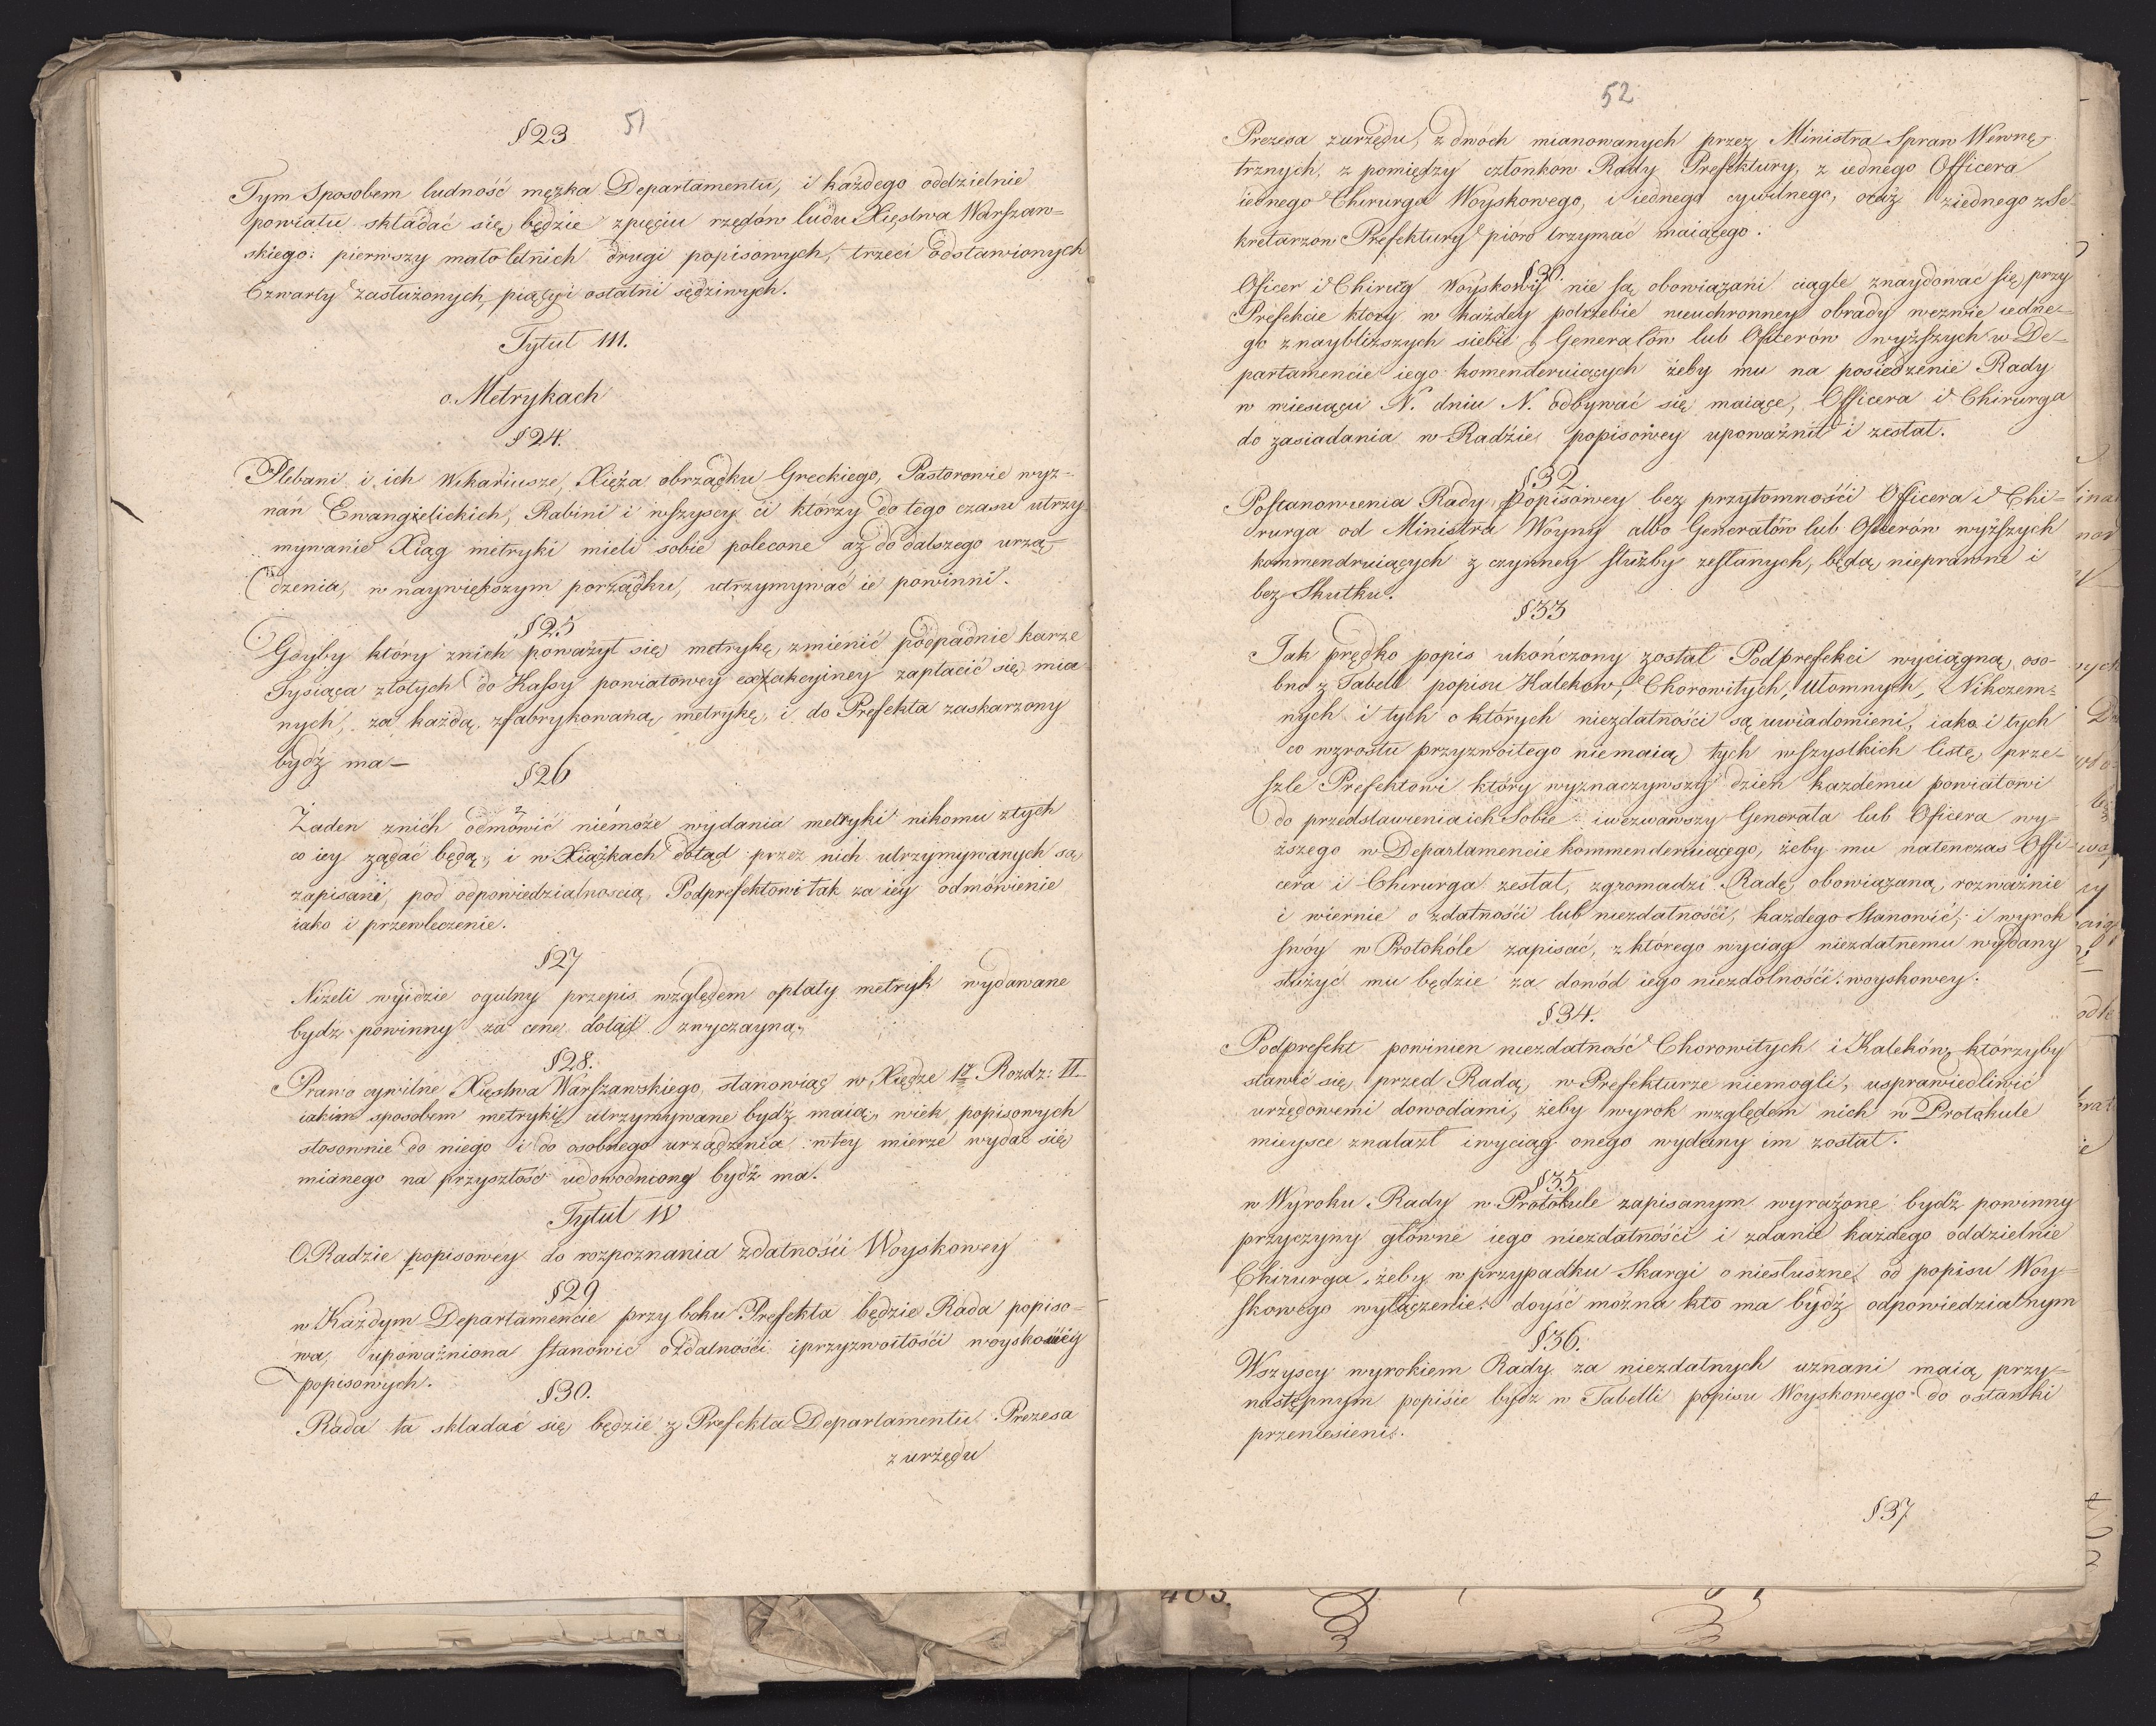 51
§ 23
Tym Sposobem ludność męzka Departamentu, i każdego oddzielnie
powiatu składać się będzie zpięciu rzędów ludu Xięstwa Warszaw=
skiego: pierwszy małoletnich drugi popisowych, trzeci odstawionych
Czwarty zasłużonych, piąty i ostatni sędziwych.
Tytuł III.
o Metrykach
§ 24.
Plebani i ich Wikariusze, Xięża obrządku Greckiego, Pastorowie wyz=
nań Ewangielickich, Rabini i wszyscy ci którzy do tego czasu utrzy
mywanie Xiąg metryki mieli sobie polecone aż do dalszego urzą=
dzenia, w naywiększym porządku, utrzymywać ie powinni.
§ 25
Gdyby który znich poważył się metrykę, zmienić podpadnie karze
Tysiąca złotych do Kassy powiatowey exzekcyiney zapłacić się mia
nych, za każdą, zfabrykowaną metrykę, i do Prefekta zaskarzony
bydź ma—
§ 26
Żaden znich odmówić niémoże wydania metryki nikomu ztych
co iey żądać będą, i w Xiążkach dotąd przez nich utrzymywanych są
zapisani, pod odpowiedzialnoscią Podprefektowi tak za iey odmówienie
iako i przewleczenie.
§ 27
Niżeli wyidzie ogulny przepis względem opłaty metryk wydawane
bydz powinny za cenę dotąd zwyczayną.
§ 28.
Prawo cywilne Xięstwa Warszawskiego, stanowiąc w Xiędze 1ey Rozdz: II
iakim sposobem metryki utrzymywane bydź maią, wiek popisowych
stosownie do niego i do osobnego urządzenia wtey mierze wydać się
mianego na przyszłość udowodniony bydź ma.
Tytuł IV
O Radzie popisowéy do rozpoznania zdatności Woyskowey
§ 29
w Każdym Departamencie przy boku Prefekta będzie Rada popiso=
wa, upoważniona stanowić o zdatności i przyzwoitości woyskowéy
popisowych.
§ 30.
Rada ta składać się będzie z Prefekta Departamentu Prezesa
z urzędu
52
Prezesa zurzędu, z dwóch mianowanych przez Ministra Spraw Wewnę=
trznych, z pomiędzy członkow Rady Prefektury, z iednego Officera
iednego Chirurga Woyskowego, i iednego cywilnego, oraz ziednego z Se=
kretarzow Prefektury pioro trzymać maiącego.
§ 31.
Oficer i Chirug Woyskowy nie są obowiązani ciągle znaydować się przy
Prefekcie ktory w każdey potrzebie nieuchronney obrady wezwie iedne=
go znaybliższych siebie Generałów lub Oficerów wyższych w De=
partamencie iego komenderuiących żeby mu na posiedzenie Rady
w miesiącu N. dniu N. odbywać się maiące, Officera i Chirurga
do zasiadania w Radzie popisowey upoważnił i zesłał.
§ 32
Postanowienia Rady popisówey bez przytomności Officera i Chi=
rurga od Ministra Woyny albo Generałów lub Oficerów wyższych
kommendruiących z czynney służby zesłanych, będą nieprawne i
bez Skutku.
§ 33
Jak prędko popis ukończony został Podprefekci wyciągną, oso-
bno z Tabell popisu Kalekow, Chorowitych, Ułomnych, Nikczem=
nych i tych o których niezdatności są uwiadomieni, iako i tych
co wzrostu przyzwoitego niemaią tych wszystkich listę prze=
szle Prefektowi który wyznaczywszy dzień kazdemu powiatowi
do przedstawienia ich Sobie iwezwawszy Generała lub Oficera wy=
ższego w Departamencie kommenderuiącego, żeby mu natenczas Offi=
cera i Chirurga zesłał, zgromadzi Radę, obowiązaną, rozważnie
i wiernie o zdatności lub niezdatności, każdego Stanowić, i wyrok
swóy w Protokóle zapisać, z którego wyciąg niezdatnemu wydany
służyć mu będzie za dowód iego niezdolności woyskowey.
§ 34.
Podprefekt powinien niezdatność Chorowitych i Kaleków, którzyby
stawić się przed Radą, w Prefekturze niemogli, usprawiedliwić
urzędowemi dowodami, żeby wyrok względem nich w Protokule
mieysce znalazł iwyciąg onego wydany im został.
§ 35
w Wyroku Rady w Protokule zapisanym wyrażone bydź powinny
przyczyny główne iego niezdatności i zdanie każdego oddzielnie
Chirurga, żeby w przypadku Skargi o niesłuszne od popisu Woy=
skowego wyłączenie doyść można kto ma bydź odpowiedzialnym
§ 36.
Wszyscy wyrokiem Rady za niezdatnych uznani maią przy=
następnym popisie bydz w Tabelli popisu Woyskowego do ostatki
przeniesieni.
§ 37